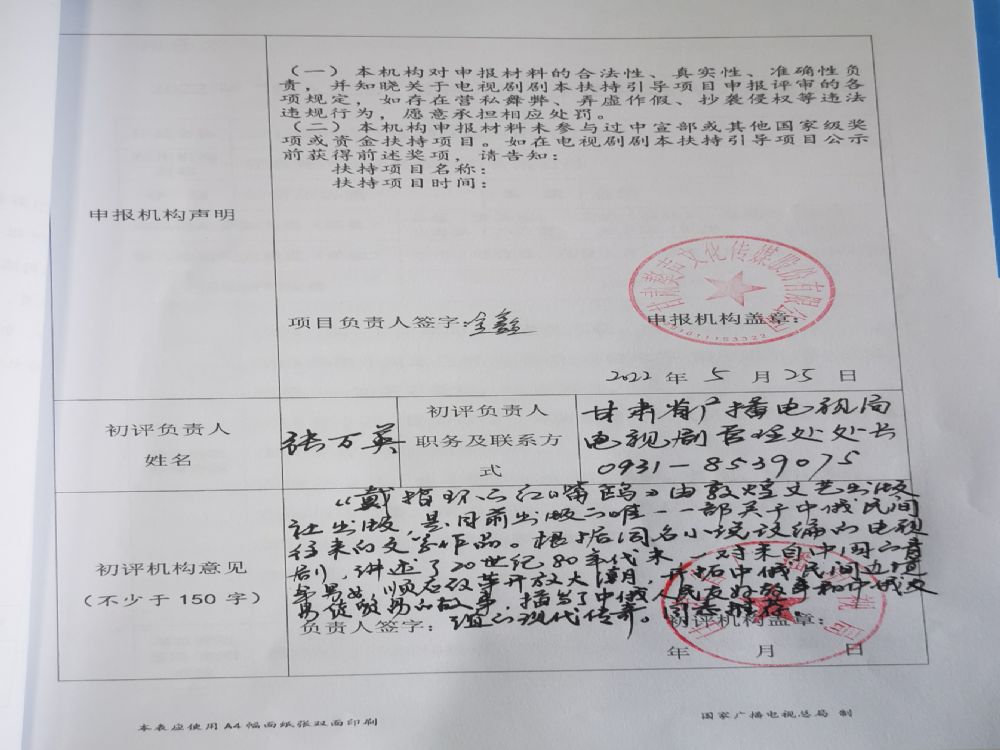 （一）本机构对申报材料的合法性、真实性、准确性负
责，并知晓关于电视剧剧本扶持引导项目申报评审的各
项规定，如存在营私舞弊、弄虚作假、抄袭侵权等违法
违规行为，愿意承担相应处罚。
（二）本机构申报材料未参与过中宣部或其他国家级奖
项或资金扶持项目。如在电视剧剧本扶持引导项目公示
前获得前述奖项，请告知：
扶持项目名称：
扶持项目时间：
申报机构声明
项目负责人签字：金鑫
申报机构盖章：
文化传媒股份有限公司
2022 年 5 月 25 日
初评负责人
姓名
张万英
初评负责人
职务及联系方
式
甘肃省广播电视局
电视剧管理处处长
0931-8539075
初评机构意见
（不少于 150 字）
《戴指环的红嘴鸥》由敦煌文艺出版
社出版，是目前出版的唯一一部关于中俄民间
往来的文学作品。根据同名小说改编的电视
剧，讲述了20世纪80年代末，一对来自中国的青
年男女，顺应改革开放大潮，开拓中俄民间边境
贸易的故事，描写了中俄人民友好故事和中俄
的现代传奇。同意推荐
负责人签字：
初评机构盖章：
年 月 日
本表应使用 A4 幅面纸张双面印刷
国家广播电视总局 制